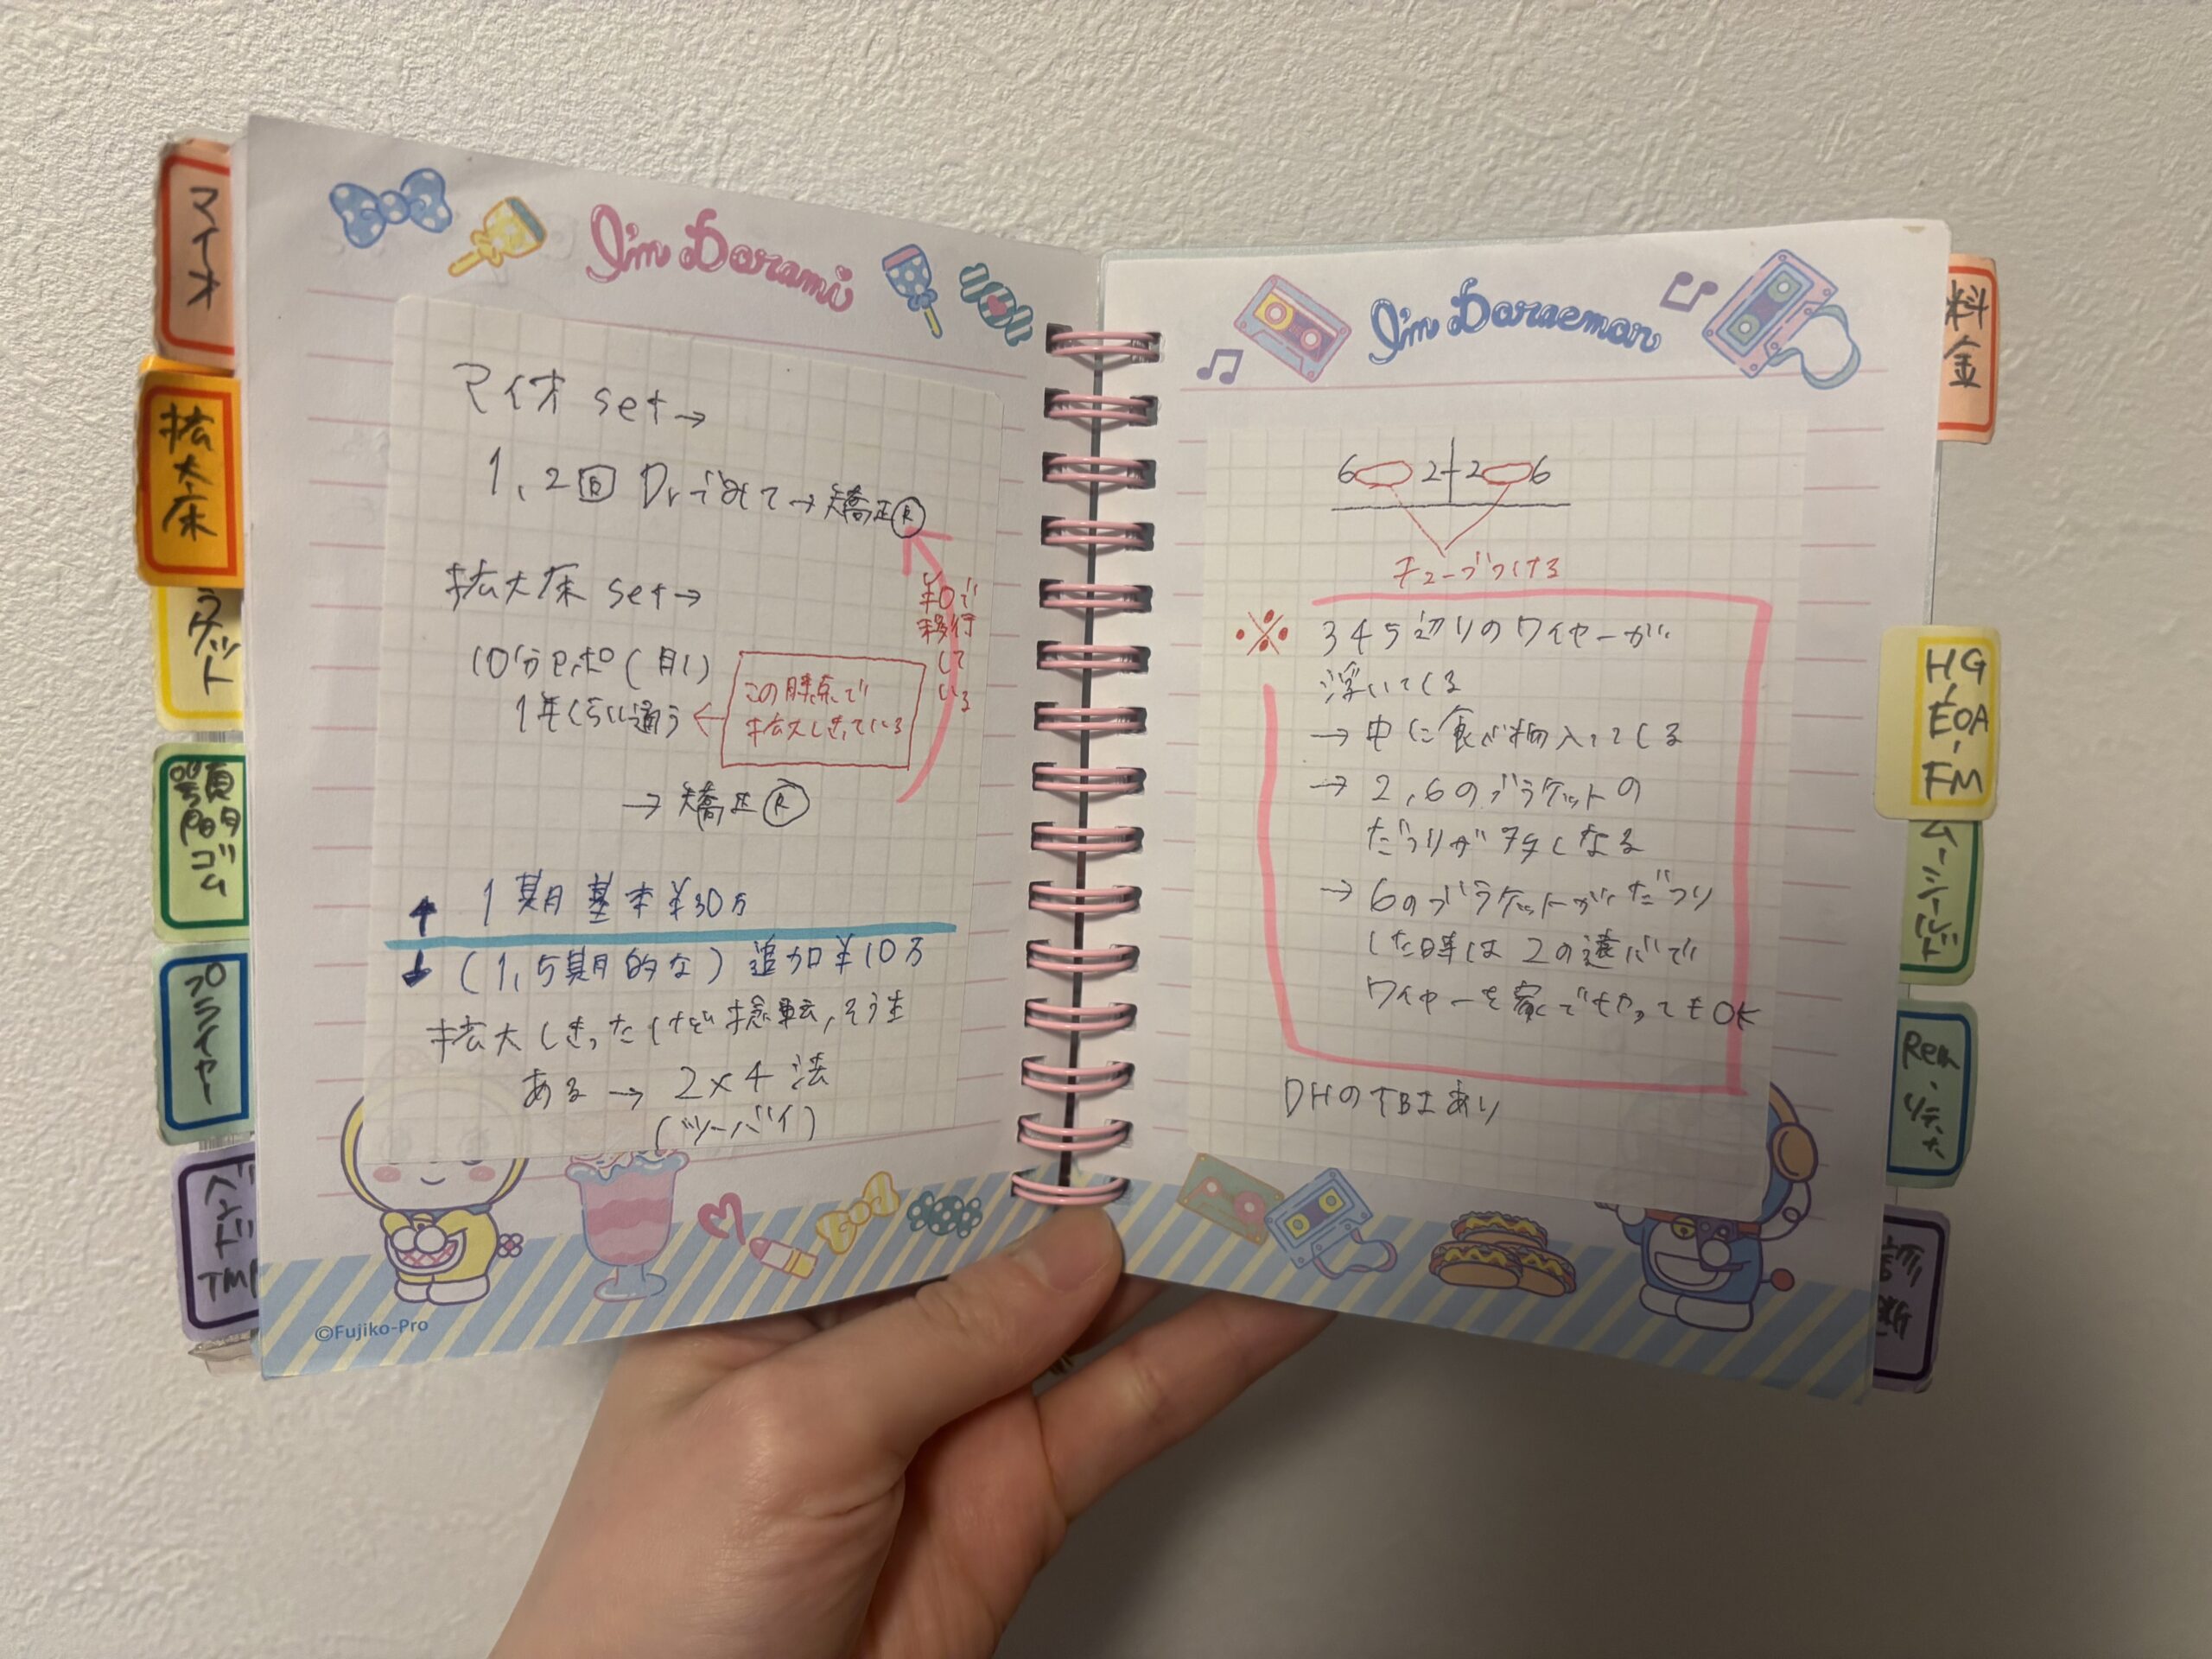 マイオ
拡大床
ラケット
顎間ゴム
プライヤー
I'm Dorami
マイオ set→
1,2回 Drでみて→矯正Ⓡ
拡大床 set→
10分 アポ(月1)
1年くらい通う
この時点で
拡大しきっている
¥0で
移行
して
いる
→矯正Ⓡ
↑ 1期基本¥30万
↓ (1,5期的な) 追加¥10万
拡大しきったけど捻転,そう生
ある → 2×4法
(ツーバイ)
©Fujiko-Pro
I'm Doraemon
6 2+2 6
チューブつける
※ 345辺りのワイヤーが
浮いてくる
→ 中に食べ物入ってくる
→ 2,6のブラケットの
だつりが多くなる
→ 6のブラケットがだつり
した時は2の遠心で
ワイヤーを家でやってもOK
DHのTBIあり
料金
HG
EOA
FM
ムーシールド